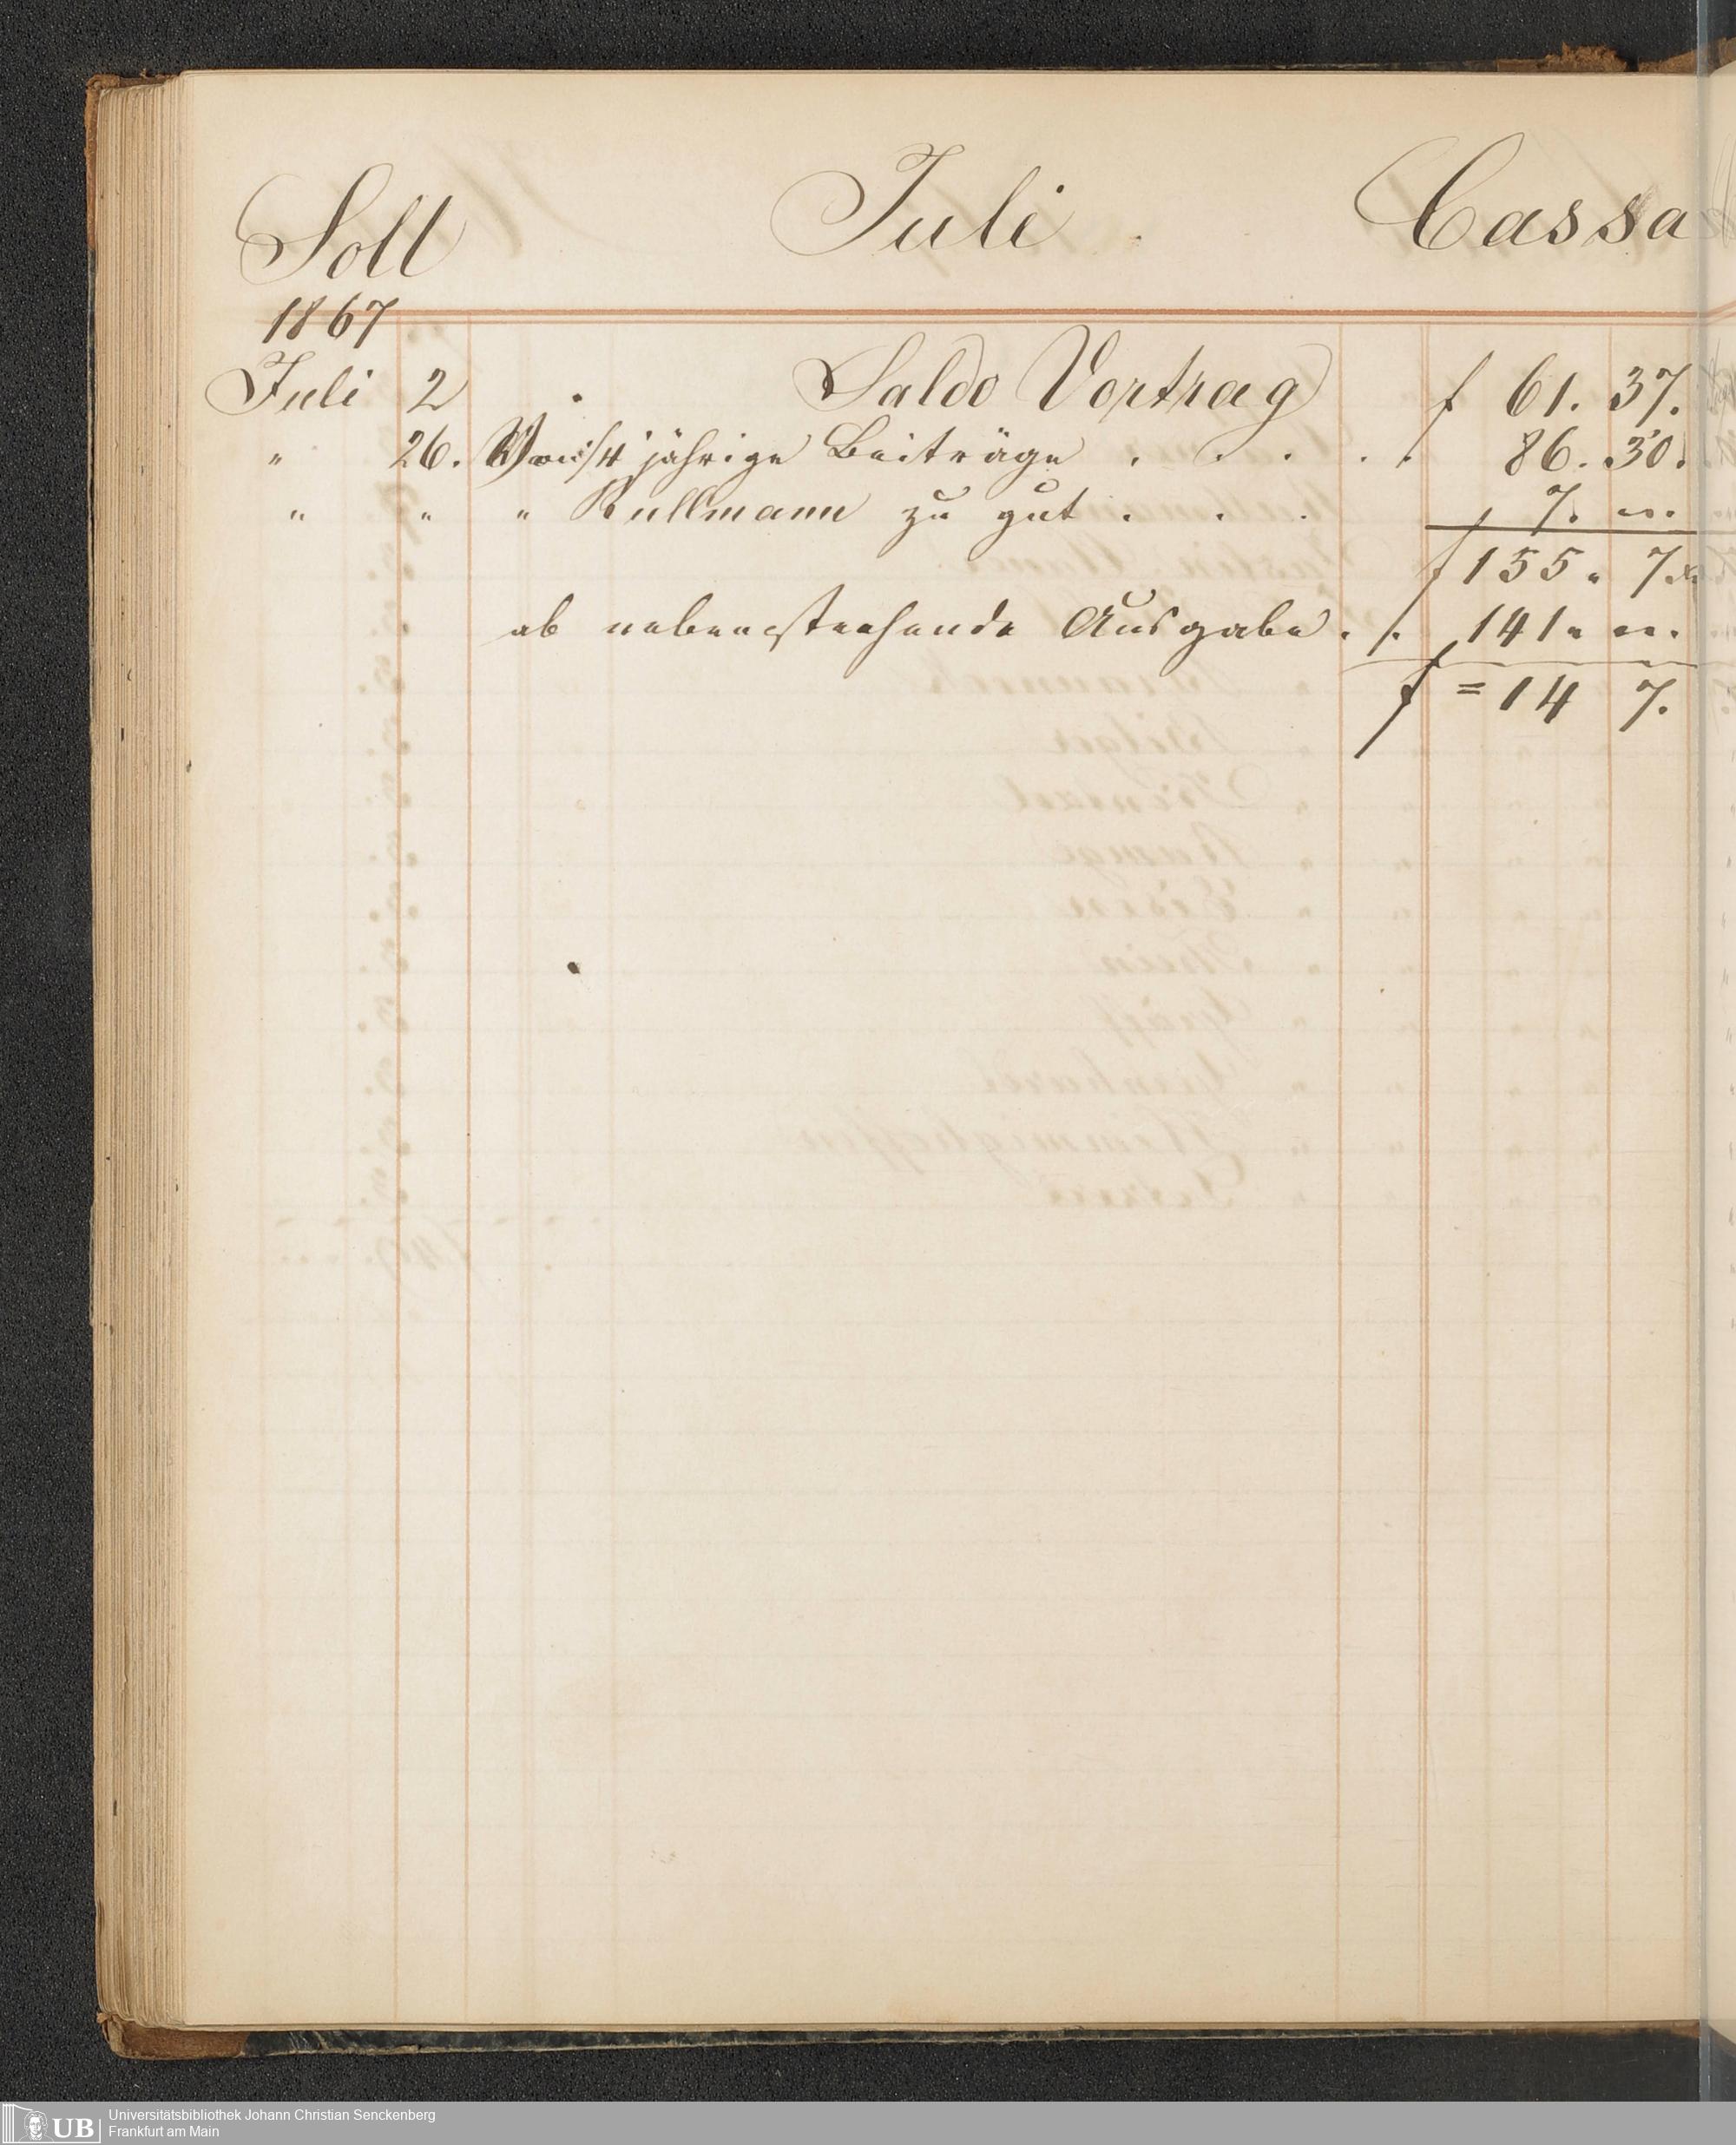 Soll Juli Cassa
1867
Juli 2 Saldo Vortrag f 61. 37.
" 26. Von 1/4 jährige Beiträge . . . . . 86. 30.
" " " Rullmann zu gut . . . 7. " .
f 155 " 7 x
ab nebenstehende Ausgabe . /. 141 " " .
f = 14 7.
UB Universitätsbibliothek Johann Christian Senckenberg
Frankfurt am Main